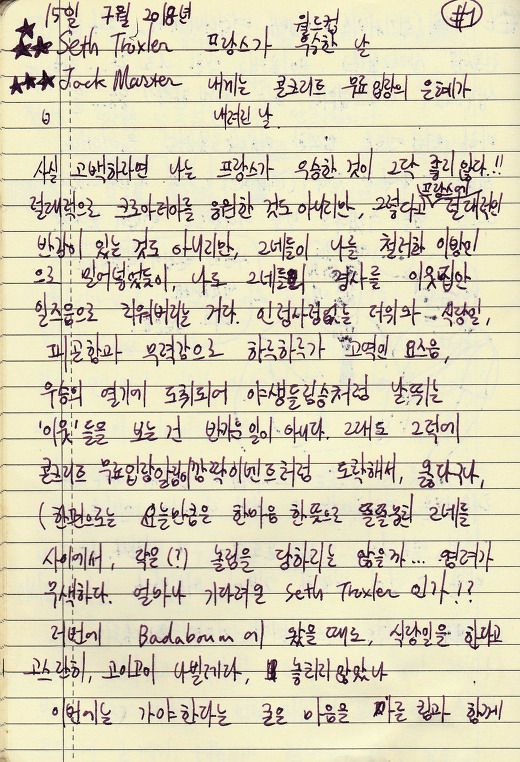 15일 7월, 2018년 #1
월드컵
★★ Seth Troxler 프랑스가 우승한 날
★★★ Jack Master 내게는 콘크리트 무료입장의 은혜가
내려진 날.
사실 고백하라면 나는 프랑스가 우승한 것이 그닥 달갑지 않다!!
프랑스에
절대적으로 크로아티아를 응원한 것도 아니리만, 그렇다고 절대적인
반감이 있는 것도 아니리만, 그네들이 나를 철저한 이방인
으로 밀어넣었듯이, 나도 그네들의 경사를 이웃집안
일즈음으로 치워버리는 거다. 인정사정없는 더위와 식당일,
피곤함과 무력감으로 하루하루가 고역인 요즈음,
우승의 열기에 도취되어 야생들짐승처럼 날뛰는
'이웃'들을 보는 건 반가운 일이 아니다. 그래도 그덕에
콘크리트 무료입장알림이 깜짝이벤트처럼 도착해서, 옳다구나,
(한편으로는 오늘만큼은 한마음 한뜻으로 똘똘뭉친 그네들
사이에서, 작은(?) 놀림을 당하리는 않을까... 염려가
무색하다. 얼마나 기다려온 Seth Troxler 인가!?
저번에 Badaboum에 왔을 때도, 식당일을 한다고
고스란히, 고이고이 나빌레라, 놓치리 않았나
이번에는 가야한다는 굳은 마음을 다른 팀과 함께